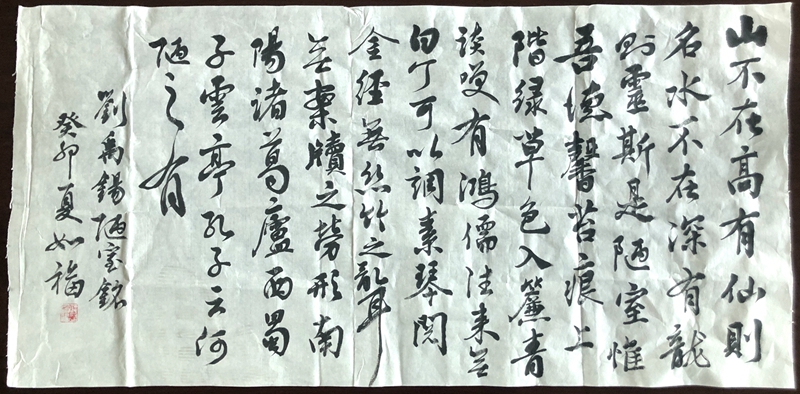 山不在高有仙則
名水不在深有龍
則靈斯是陋室惟
吾德馨苔痕上
階緑草色入簾青
談笑有鴻儒往來無
白丁可以調素琴閲
金經無絲竹之亂耳
無案牘之勞形南
陽諸葛廬西蜀
子雲亭孔子云何
陋之有
劉禹錫陋室銘
癸卯夏如福